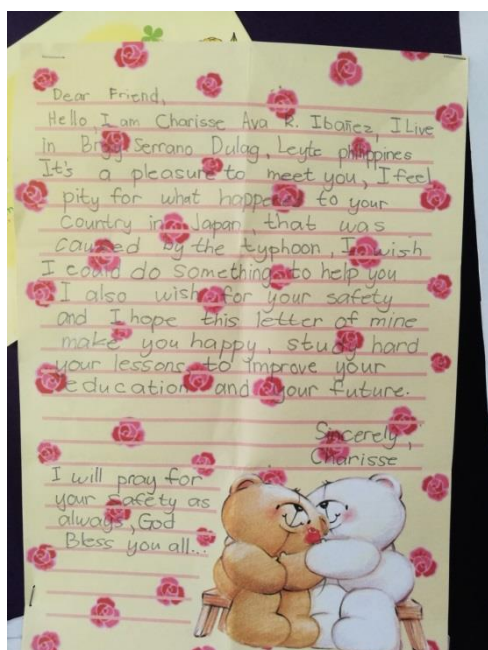 Dear Friend,
Hello, I am Charisse Ava R. Ibañez, I Live
in Brgy. Serrano Dulag, Leyte philippines
It's a pleasure to meet you, I feel
pity for what happened to your
Country in Japan, that was
caused by the typhoon, I wish
I could do something to help you
I also wish for your safety
and I hope this letter of mine
make you happy, study hard
your lessons to improve your
education and your future.
Sincerely,
Charisse
I will pray for
your safety as
always, God
Bless you all...